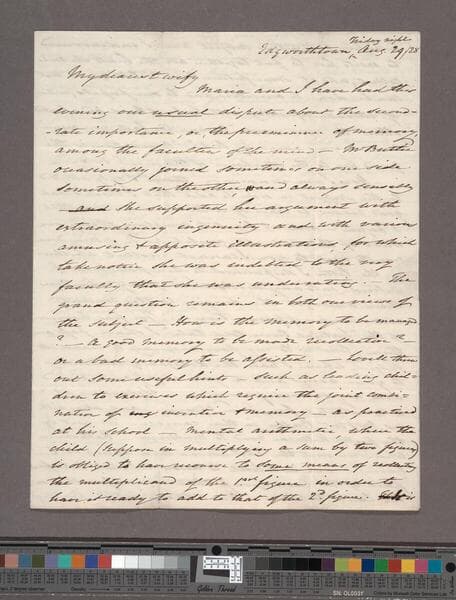 Friday night
Edgworthtown, Aug. 29/28
My dearest wify
Maria and I have had this
evening our usual dispute about the second-
-rate importance, or the preeminence of memory,
among the faculties of the mind — Mr Butler
occasionally joined sometimes on one side
sometimes on the other, and always sensibly
and She supported her argument with
extraordinary ingenuity and with various
amusing & apposite illustrations, for which
take notice she was indebted to the very
faculty that she was underrating. The
grand question remains in both our views of
the subject — How is the memory to be managed
? — A good memory to be made recollective? —
or a bad memory to be assisted. — threw
out some useful hints — such as leading chil-
dren to exercises which require the joint combi-
nation of invention & memory — as practised
at his school — Mental arithmetic where the
child (suppose in multiplying a sum by two figures)
is obliged to have recourse to some means of
the multiplicand of the 1st figure in order to
have it ready to add to that of the 2d figure. is
Golden Thread